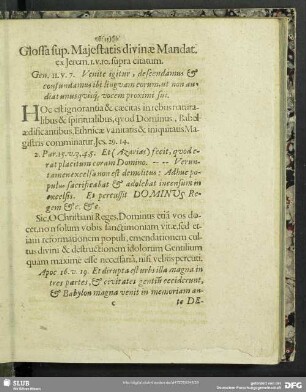 Glossa sup. Majestatis divinæ Mandat.
ex Jerem. 1. v. 10. supra citatum.
Gen. 11. v. 7. Venite igitur, descendamus &
confundamus ibi linguam eorum ut non au-
diat unusquisq; vocem proximi sui.
HOc est ignorantia & cæcitas in rebus natura-
libus & spiritualibus, quod Dominus, Babel
ædificantibus, Ethnicæ vanitatis & iniquitatis
Magistris comminatur. Jes. 29. 14.
2. Par. 15. v. 9. 4. 5. Et (Azarias) fecit, quod e-
rat placitum coram Domino. -- -- Verun-
tamen excelsa non est demolitus: Adhuc po-
pulus sacrificabat & adolebat incensum in
excelsis. Et percussit DOMINUS Re-
gem &c. &c.
Sic, O Christiani Reges, Dominus etiā vos do-
cet, non solum vobis sanctimoniam vitæ, sed et-
iam reformationem populi, emendationem cul-
tus divini & destructionem idolorum Gentilium
quam maximè esse necessariā, nisi velitis percuti.
Apoc. 16. v. 19. Et dirupta est urbs illa magna in
tres partes, & civitates gentiū ceciderunt,
& Babylon magna venit in memoriam an-
c
te DE-
SLUB
Wir führen Wissen.
DFG